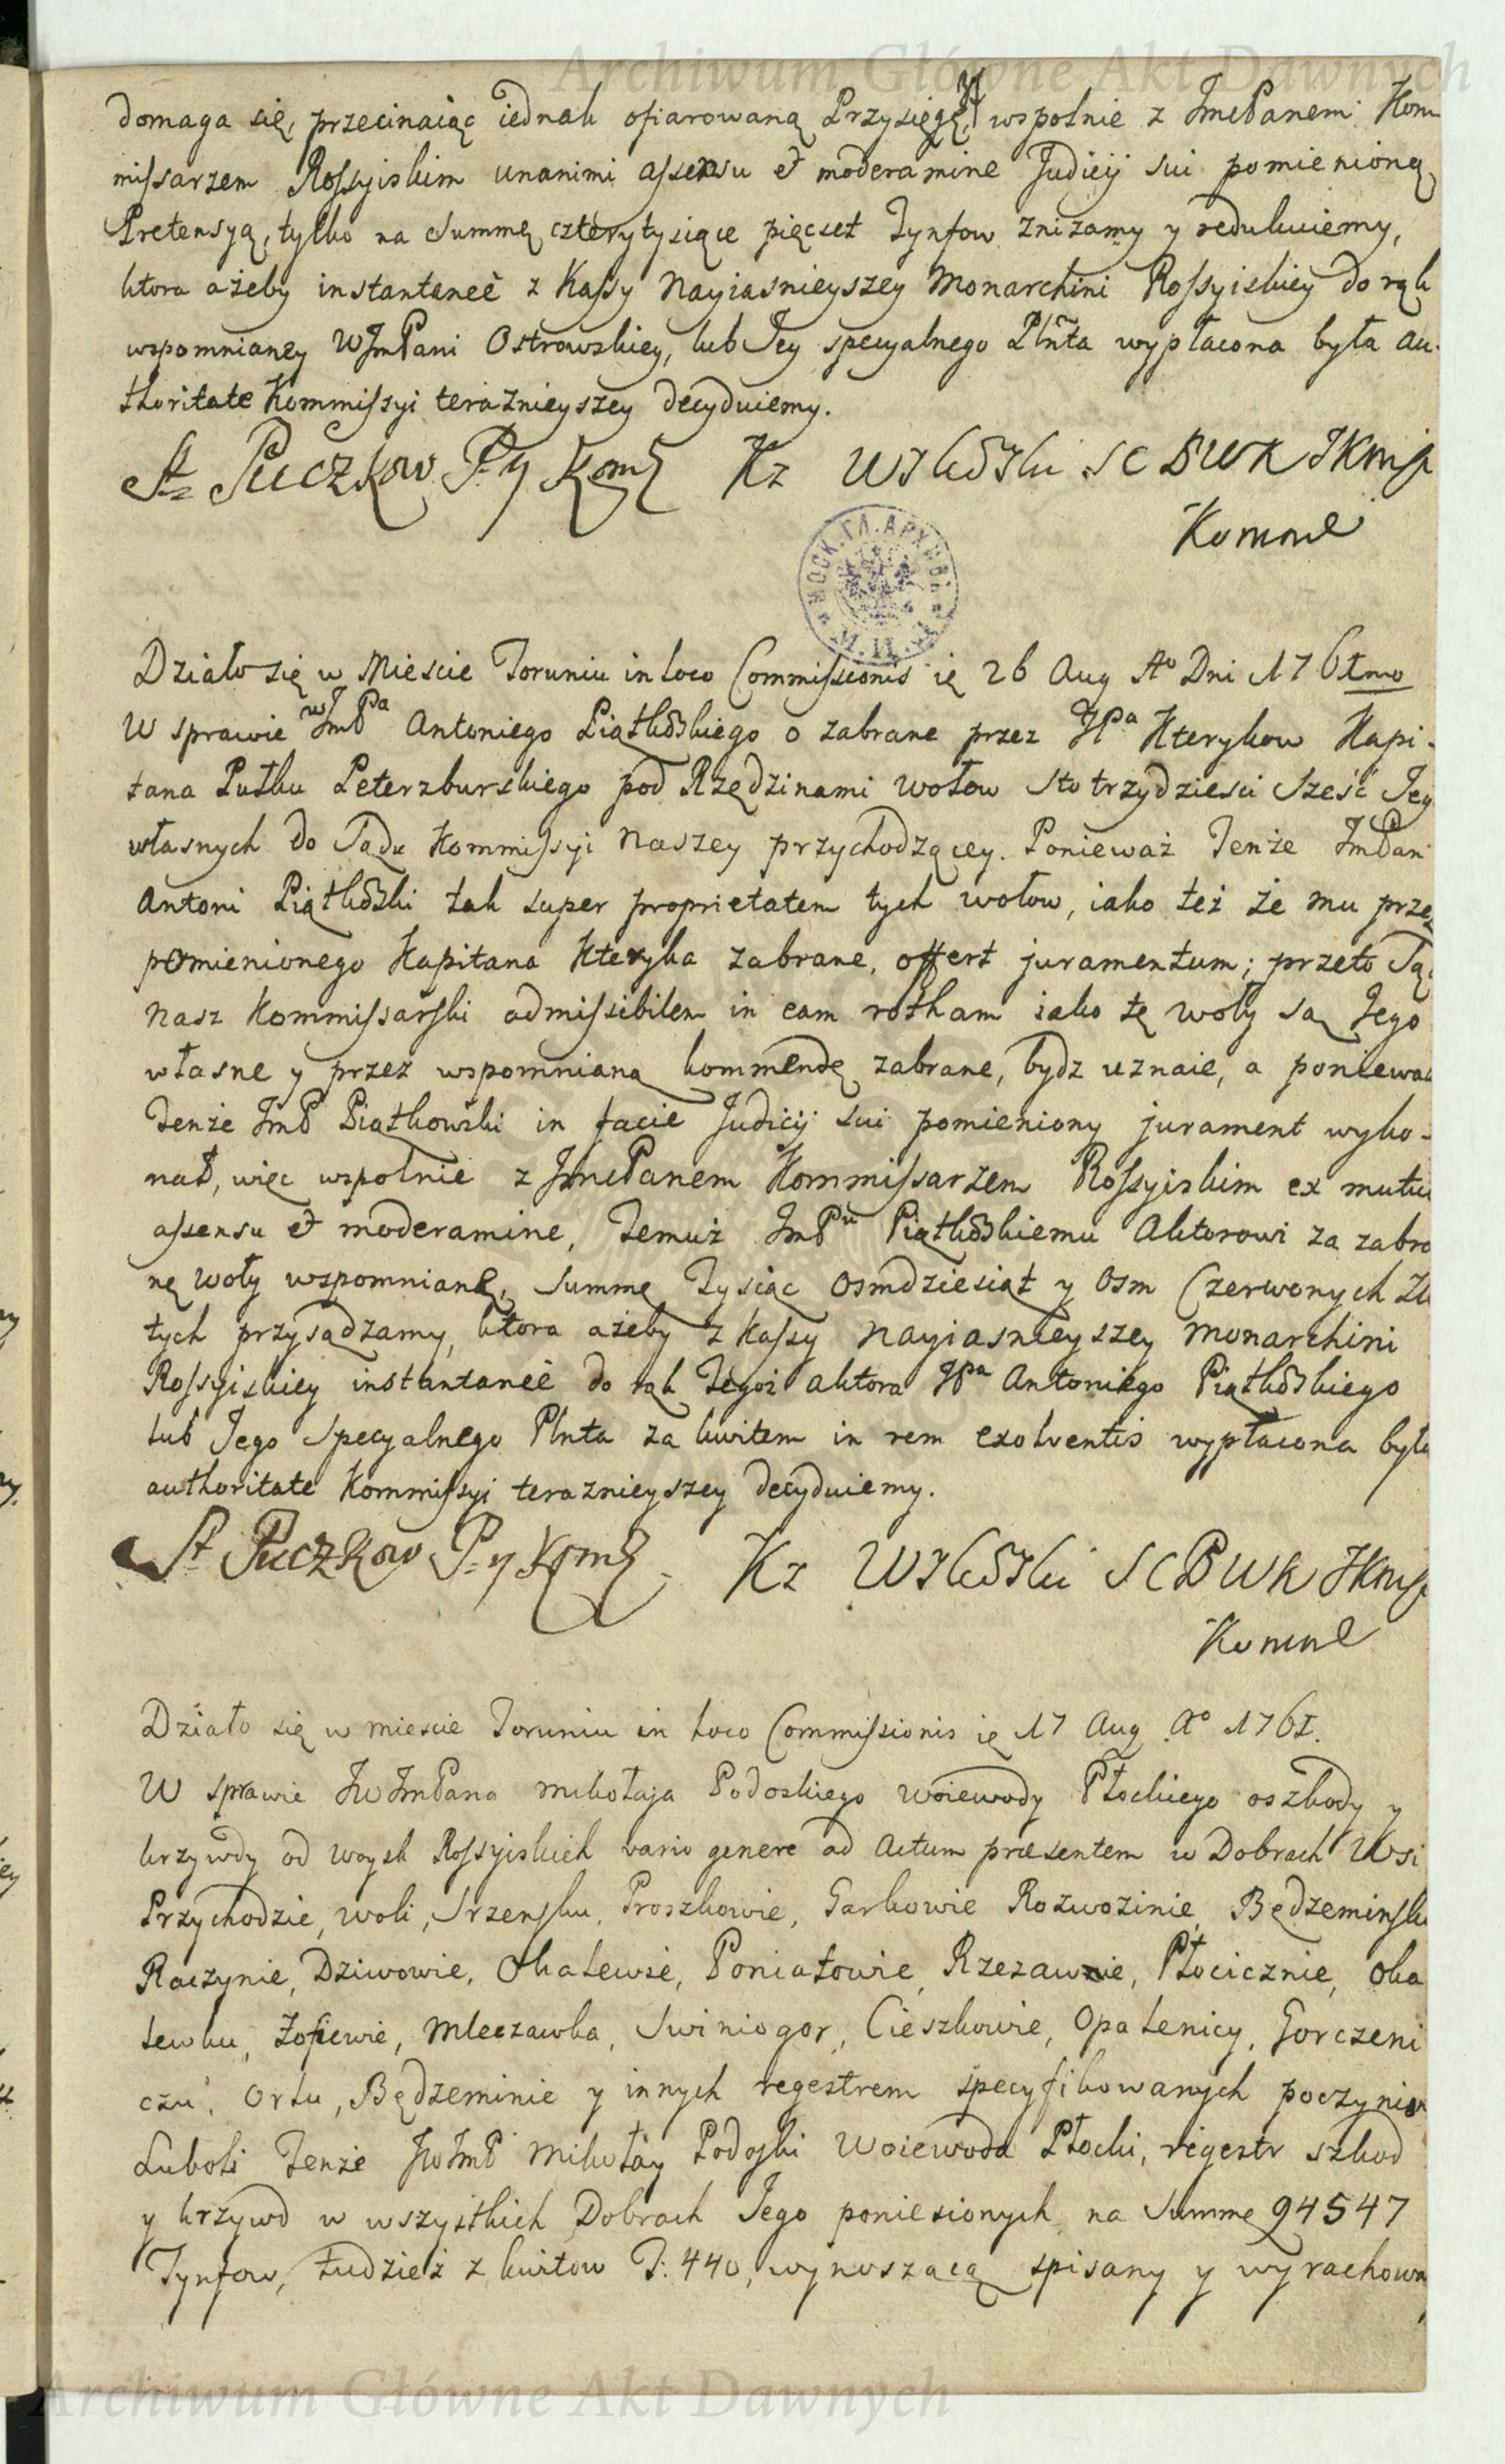 Archiwum Główne Akt Dawnych
domaga się, przecinaiąc iednak ofiarowaną Przysięgę, y wspolnie z JmcPanem Kom
missarzem Rossyiskim unanimi assensu et moderamine Judicij sui pomienioną
Pretensyą, tylko na Summę cztery tysiące pięcset Tynfow zniżamy y redukuiemy,
ktora ażeby instantaneè z Kassy Nayiasnieyszey Monarchini Rossyiskiey do rąk
wspomnianey WJmPani Ostrowskiey, lub Jey specyalnego Plnta wypłacona była au-
thoritate Kommissyi teraznieyszey decyduiemy.
St Puczkow P. y Kom Kz SCBWK JKMsp
Komm
МОСК. ГЛ. АРХИВЪ М. И. Д.
Działo się w Miescie Toruniu in loco Commissionis ię 26 Aug Ao Dni 1761mo
W sprawie WJmPa Antoniego Piątkowskiego o zabrane przez JPa Kterykow Kapi-
tana Pułku Peterzburskiego pod Rzędzinami Wołow Sto trzydziesci Sześć Jeg
własnych do Sądu Kommissyi Naszey przychodzącey. Ponieważ Tenże JmPan
Antoni Piątkowski tak super proprietatem tych wołow, iako też że mu przez
pomienionego Kapitana Kteryka zabrane, offert juramentum; przeto Są
Nasz Kommissarski admissibilem in eam rotham iako tę woły są Jego
własne y przez wspomnianą kommendę zabrane, bydz uznaie, a poniewa
Tenże JmP Piątkowski in facie Judicij sui pomieniony jurament wyko-
nał, więc wspolnie z JmcPanem Kommissarzem Rossyiskim ex mutuo
assensu et moderamine, Temuż JmPu Piątkowskiemu Aktorowi za zabra
nę woły wspomnianę, Summę Tysiąc Osmdziesiąt y Osm Czerwonych Zło
tych przysądzamy, ktora ażeby z Kassy Nayiasnieyszey Monarchini
Rossyiskiey instantaneè do rąk Tegoż aktora JPa Antoniego Piątkowskiego
lub Jego Specyalnego Plnta za kwitem in rem exolventis wypłacona była
authoritate Kommissyi teraznieyszey decyduiemy.
St Puczkow P. y Kom Kz SCBWK JKMsp
Komm
Działo się w miescie Toruniu in loco Commissionis ię 17 Aug Ao 1761.
W sprawie JWJmPana Mikołaja Podoskiego Woiewody Płockiego o szkody y
krzywdy od woysk Rossyiskich vario genere ad actum præsentem w Dobrach Wsi
Przychodzie, Woli, Srzensku, Proszkowie, Garkowie Rozwozinie, Będzeminsku
Raczynie, Dziwowie, Okalewie, Poniatowie, Rzezawnie, Płocicznie, Oka
lewku, Zofiewie, Mleczawka, Swiniogor, Cieszkowie, Opalenicy, Gorczeni
czu, Orlu, Będzeminie y innych regestrem specyfikowanych poczynion
Luboli Tenże JWJmP Mikołay Podoski Woiewoda Płocki, regestr szkod
y krzywd w wszystkich Dobrach Jego poniesionych, na Summę 94547
Tynfow, tudzież z kwitow T: 440, wynoszącą spisany y wyrachowa
Archiwum Główne Akt Dawnych